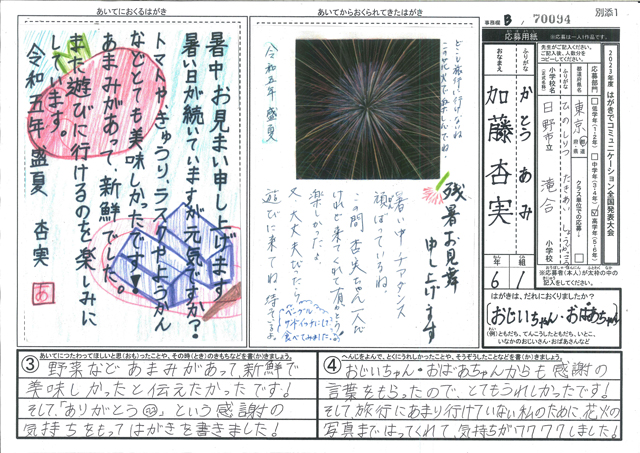 別添1
事務欄 B, 70094
あいてにおくるはがき
暑中お見まい申し上げます
暑い日が続いていますが元気ですか?
トマトやきゅうり、ラスクやようかん
などとても美味しかったです♥
あまみがあって、新鮮でした。
また遊びに行けるのを楽しみに
しています。
令和五年 盛夏 杏実
あいてからおくられてきたはがき
残暑お見舞
申し上げます
暑い中チアダンス
頑ばっているね
この間杏実ちゃん一人で
けれど来てくれて
楽しかったよ
又大丈夫だったら
遊びに来てね 待ってるよ
どこも旅行に行けないね
令和五年 盛夏
応募用紙
※応募は一人1作品です。
2023年度 はがきでコミュニケーション全国発表大会
応募部門
低学年(1・2年)
中学年(3・4年)
高学年(5・6年)
クラス単位での応募
都道府県名
東京
ふりがな
小学校名
ひのしりつ たきあい しょうがっこう
日野市立 滝合 小学校
ふりがな
かとう あみ
おなまえ
加藤 杏実
6年 1組
※応募者(本人)が太枠の中の
記入をしてください。
はがきは、だれにおくりましたか?
おじいちゃん・おばあちゃん
(例)ともだち、てんこうしたともだち、いとこ、
いなかのおじいさん・おばあさんなど
③ あいてにつたわってほしいと思(おも)ったことや、その時(とき)のきもちなどを書(か)きましょう。
野菜などあまみがあって、新鮮で
美味しかったと伝えたかったです!
そして、「ありがとう」という感謝の
気持ちをもってはがきを書きました!
④ へんじをよんで、とくにうれしかったことや、そうぞうしたことなどを書(か)きましょう。
おじいちゃん・おばあちゃんからも感謝の
言葉をもらったので、とてもうれしかったです!
そして、旅行にあまり行けていない私のために、花火の
写真まではってくれて、気持ちがワクワクしました!